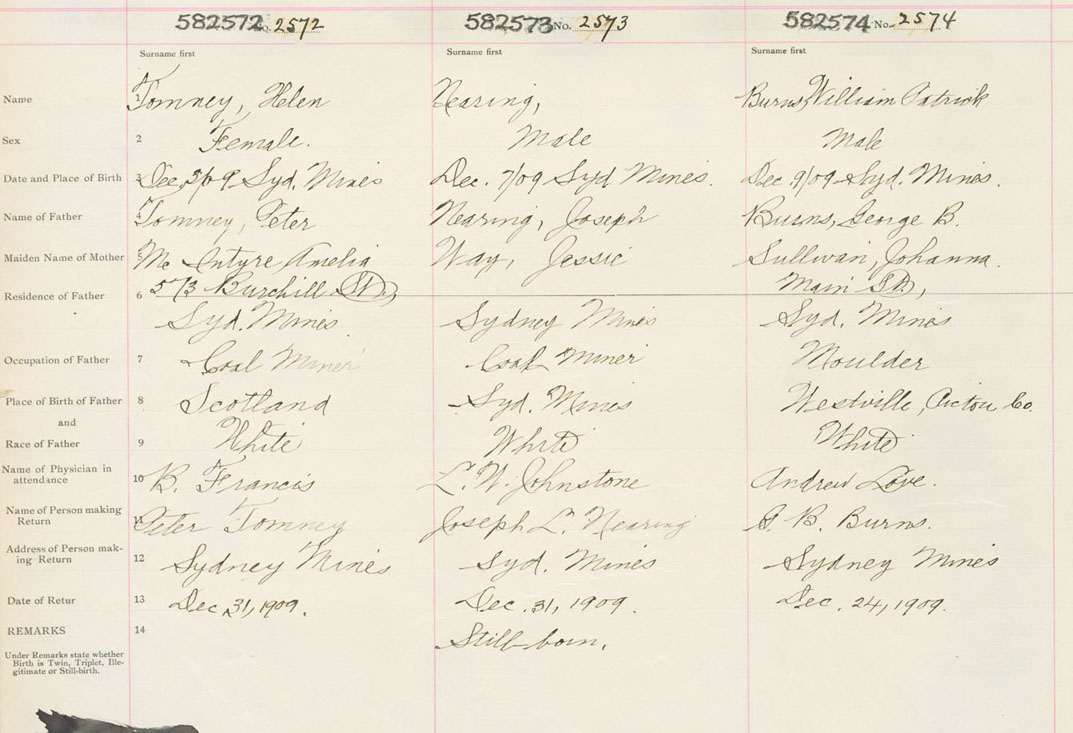 582572 No. 2572 582573 No. 2573 582574 No. 2574
Surname first Surname first Surname first
Name 1 Tomney, Helen Nearing, Burns, William Patrick
Sex 2 Female. Male Male
Date and Place of Birth 3 Dec 3/09 Syd. Mines Dec. 7/09 Syd Mines. Dec 9/09 Syd. Mines.
Name of Father 4 Tomney, Peter Nearing, Joseph Burns, George B.
Maiden Name of Mother 5 Mc Intyre Amelia Way, Jessie Sullivan, Johanna.
573 Burchill St, Main St,
Residence of Father 6
Syd. Mines Sydney Mines Syd. Mines
Occupation of Father 7 Coal Miner Coal Miner Moulder
Place of Birth of Father 8 Scotland Syd. Mines Westville, Pictou Co.
and
Race of Father 9 White White White
Name of Physician in
attendance 10 B. Francis L. W. Johnstone Andrew Love.
Name of Person making
Return 11 Peter Tomney Joseph L. Nearing G. B. Burns.
Address of Person mak-
ing Return 12 Sydney Mines Syd. Mines Sydney Mines
Date of Retur 13 Dec 31, 1909. Dec. 31, 1909. Dec. 24, 1909.
REMARKS 14 Still-born.
Under Remarks state whether
Birth is Twin, Triplet, Ille-
gitimate or Still-birth.